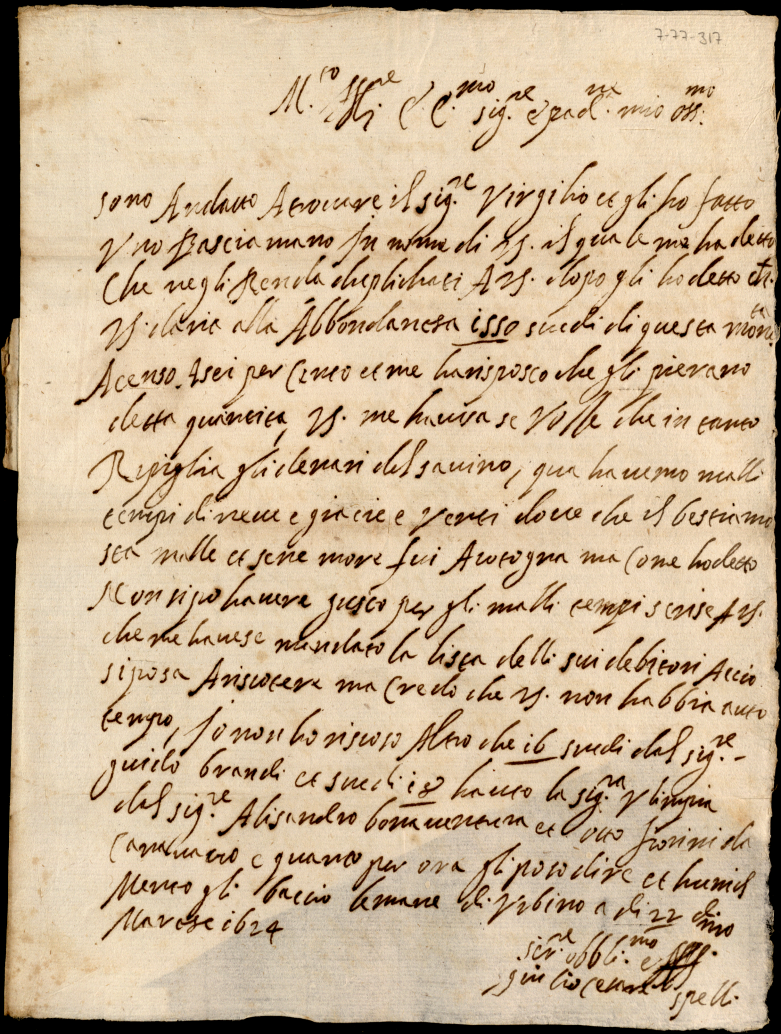 7-77-317
M.to Ill.re e C.mo sig.re e pad.ne mio oss.mo
sono Andatto Atrovare il sig.re Virgilio et gli ho fatto
Uno Basciamano In nome di VS. il quale me ha detto
Che negli Renda duplichati A VS. dopo gli ho detto che
VS. daria alla Abbondantia 1550 scudi di questa mone.ta
Acenso A sei per Cento et me ha risposto che gli pierano
detta quantita, VS. me havisa se Volle che in tanto
Ripiglia gli denari del savino, qua havemo malli
tempi di neve e giacie e Venti dove che il bestiamo
sta malle et sene more fui Arotogna ma Come ho detto
Non si po havere gusto per gli malli tempi scrise A VS.
che me havese mandato la lista delli sui debitori Accio
si posa Ariscotere ma Credo che VS. non habbia auto
tempo, Io non ho riscoso Altro che 16 scudi dal sig.re
guido brandi et scudi 18 ha uto la sig.ra Vlimpia
dal sig.re Alisandro bonaventura et otto fiorini da
e quanto per ora gli poso dire et humil
Mente gli baccio le mane di Vrbino a di 22 di
Marzse 1624
ser.re obbli.mo e
giulio Cesare spelli